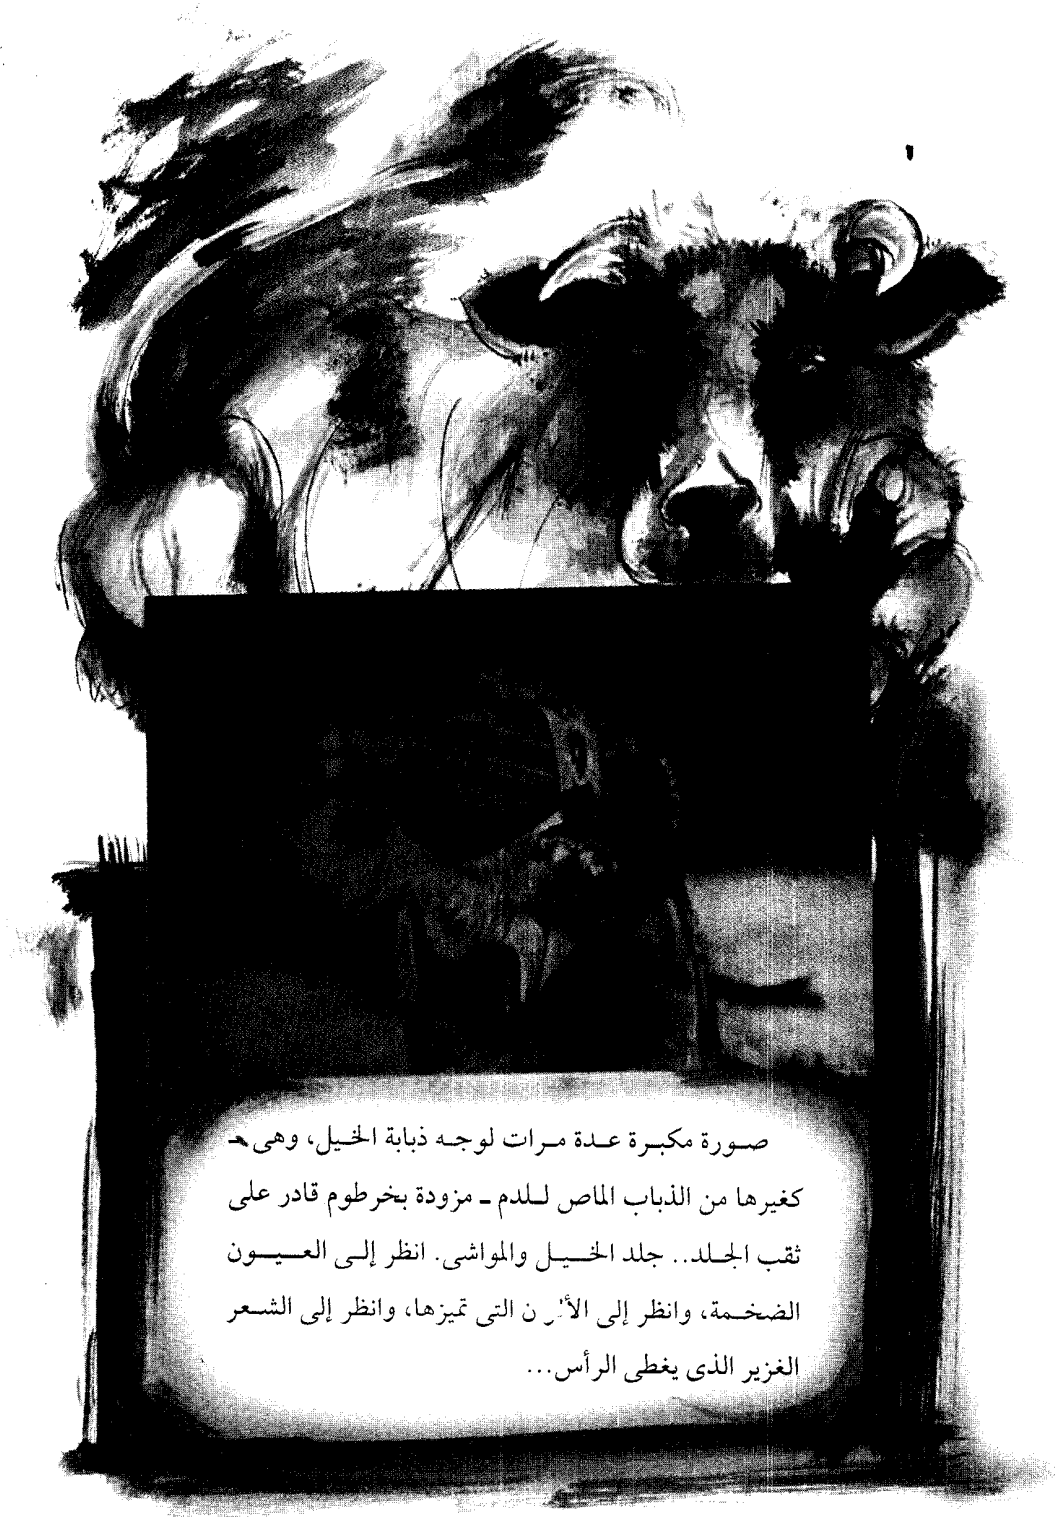 صورة مكبرة عدة مرات لوجه ذبابة الخيل، وهى ـ
كغيرها من الذباب الماص للدم ـ مزودة بخرطوم قادر على
ثقب الجلد.. جلد الخيل والمواشى. انظر إلى العيون
الضخمة، وانظر إلى التى تميزها، وانظر إلى الشعر
الغزير الذى يغطى الرأس...